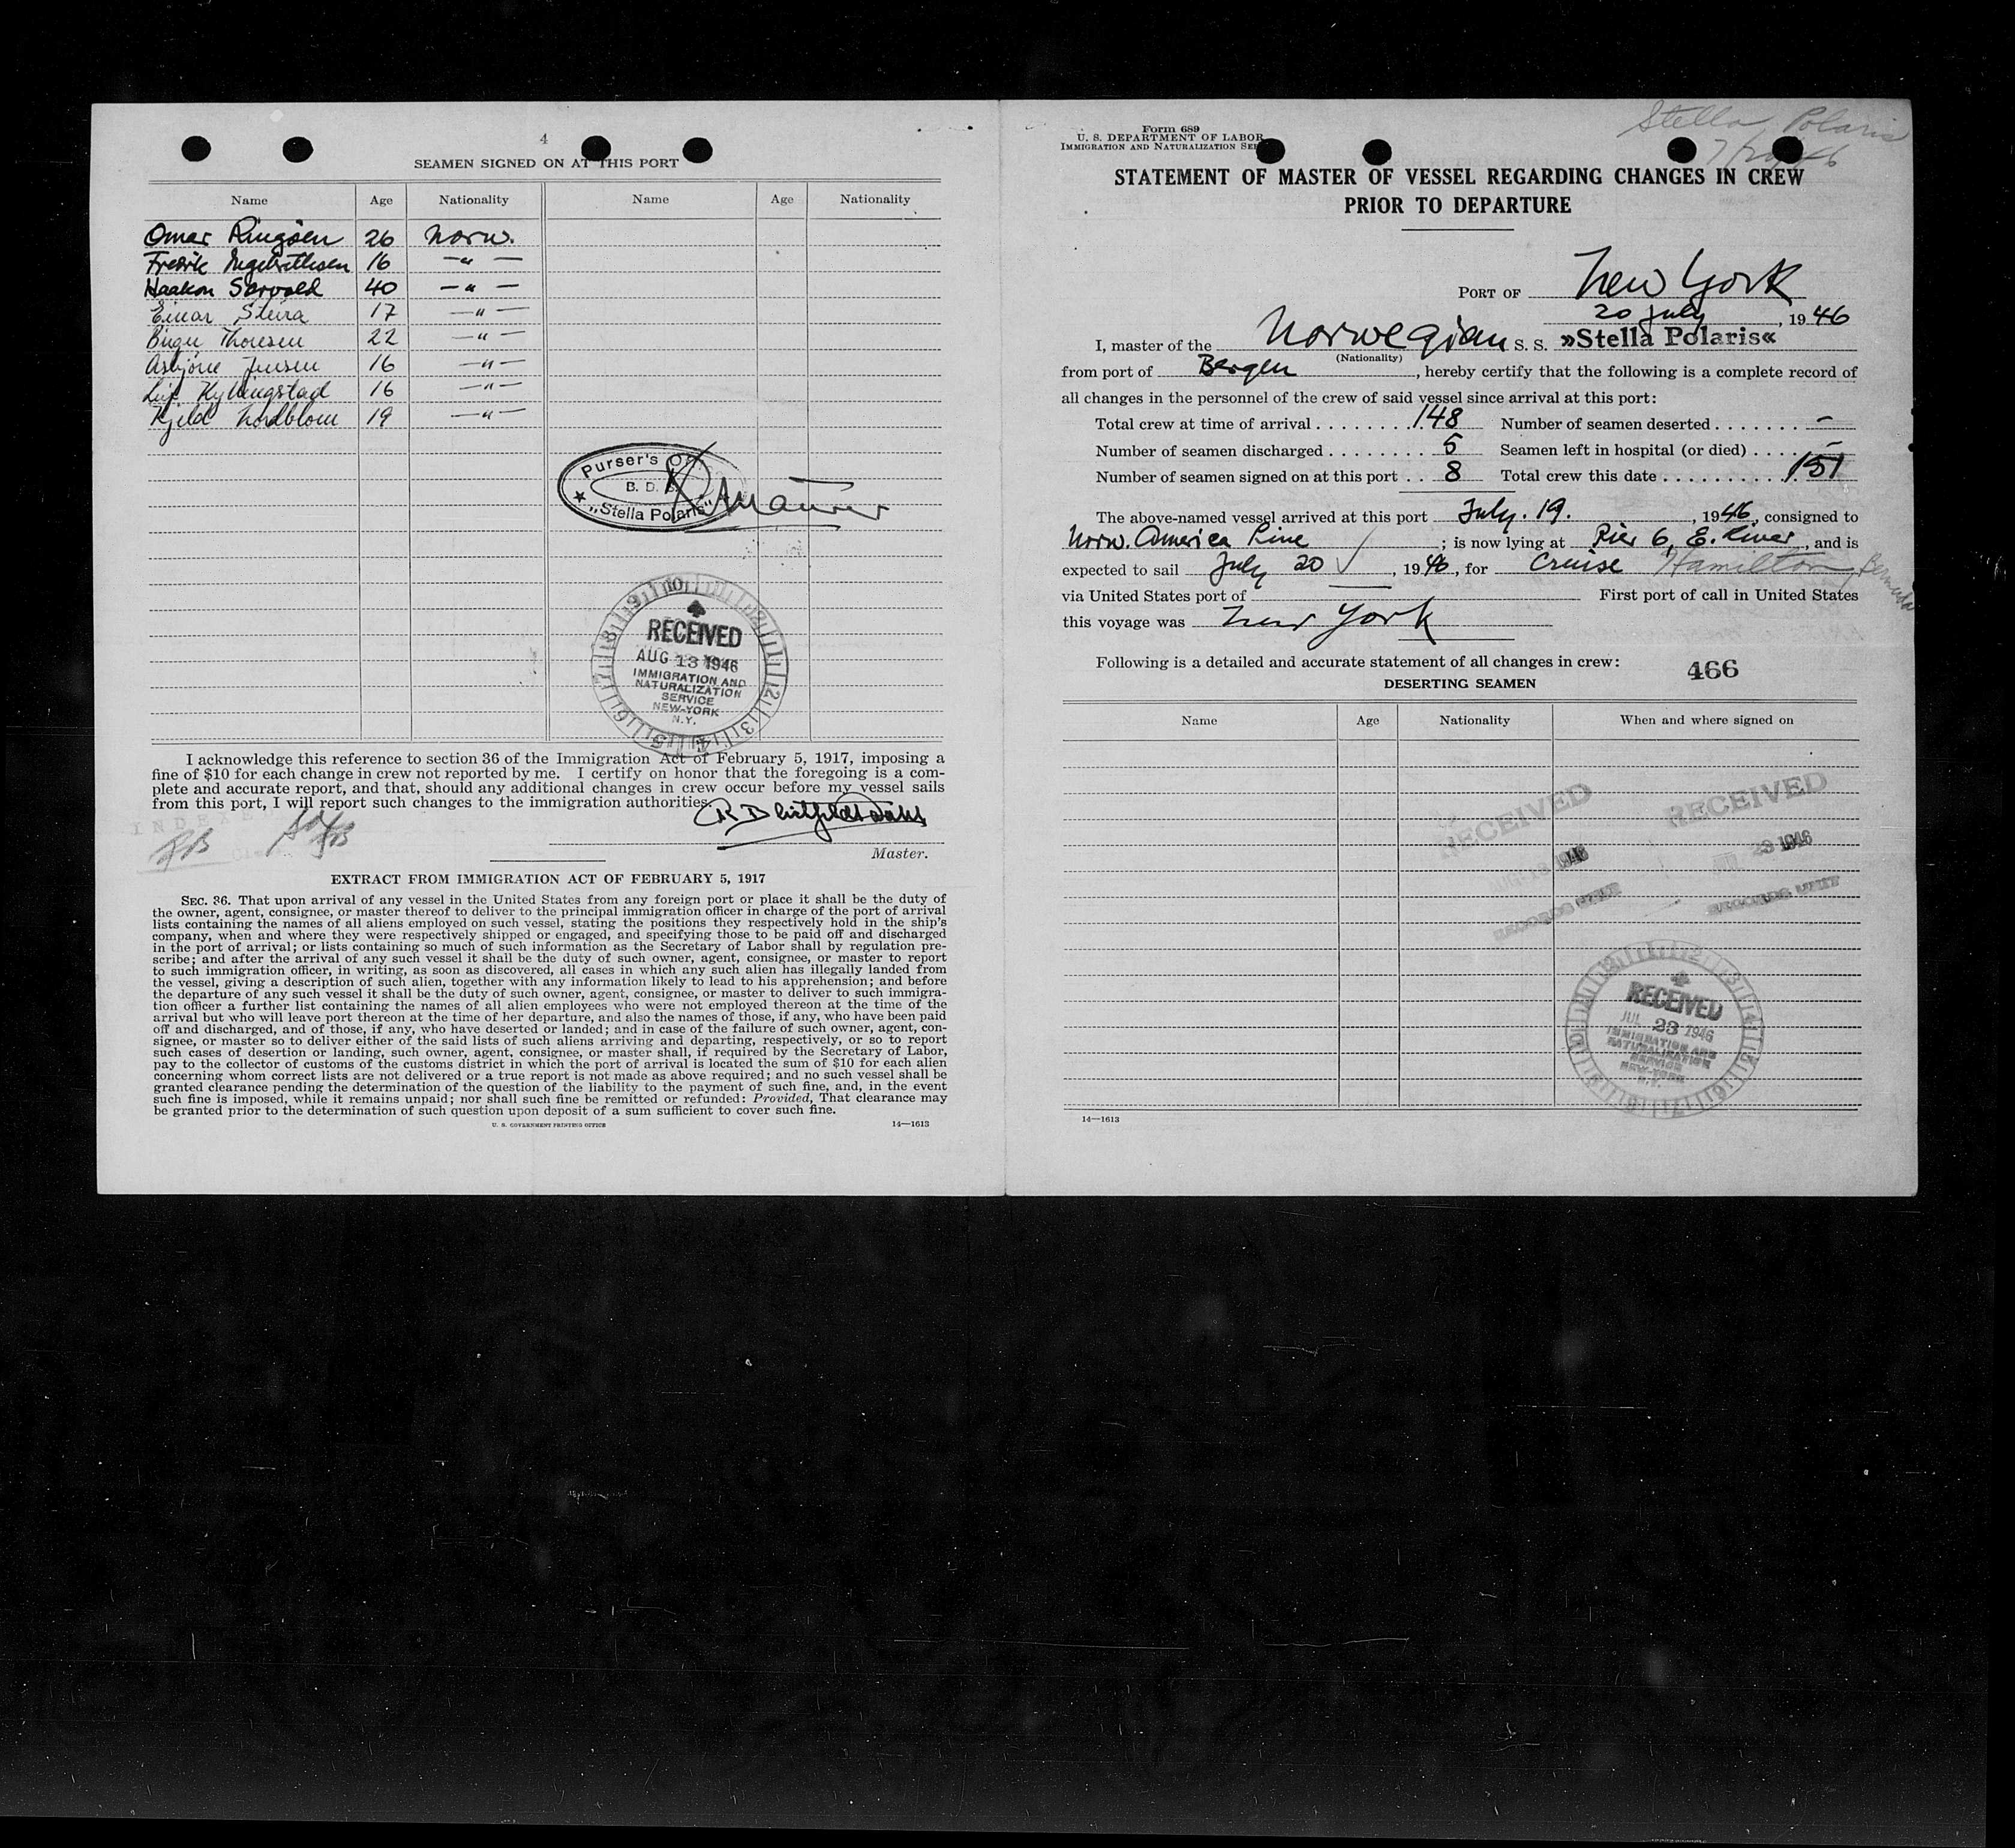 4
SEAMEN SIGNED ON AT THIS PORT
Name Age Nationality Name Age Nationality
Omar Ringsen 26 Norw.
Fredrik Ingebrethsen 16 —"—
Haakon 40 —"—
Einar Steira 17 —"—
Birger Thoresen 22 —"—
Asbjörn Jensen 16 —"—
Leif Kyllingstad 16 —"—
Kjeld Nordblom 19 —"—
Purser's
B. D. S.
"Stella Polaris"
K Maurer
RECEIVED
AUG 13 1946
IMMIGRATION AND
NATURALIZATION
SERVICE
NEW-YORK
N.Y.
I acknowledge this reference to section 36 of the Immigration Act of February 5, 1917, imposing a
fine of $10 for each change in crew not reported by me. I certify on honor that the foregoing is a com-
plete and accurate report, and that, should any additional changes in crew occur before my vessel sails
from this port, I will report such changes to the immigration authorities.
INDEXED
Master.
EXTRACT FROM IMMIGRATION ACT OF FEBRUARY 5, 1917
SEC. 36. That upon arrival of any vessel in the United States from any foreign port or place it shall be the duty of
the owner, agent, consignee, or master thereof to deliver to the principal immigration officer in charge of the port of arrival
lists containing the names of all aliens employed on such vessel, stating the positions they respectively hold in the ship's
company, when and where they were respectively shipped or engaged, and specifying those to be paid off and discharged
in the port of arrival; or lists containing so much of such information as the Secretary of Labor shall by regulation pre-
scribe; and after the arrival of any such vessel it shall be the duty of such owner, agent, consignee, or master to report
to such immigration officer, in writing, as soon as discovered, all cases in which any such alien has illegally landed from
the vessel, giving a description of such alien, together with any information likely to lead to his apprehension; and before
the departure of any such vessel it shall be the duty of such owner, agent, consignee, or master to deliver to such immigra-
tion officer a further list containing the names of all alien employees who were not employed thereon at the time of the
arrival but who will leave port thereon at the time of her departure, and also the names of those, if any, who have been paid
off and discharged, and of those, if any, who have deserted or landed; and in case of the failure of such owner, agent, con-
signee, or master so to deliver either of the said lists of such aliens arriving and departing, respectively, or so to report
such cases of desertion or landing, such owner, agent, consignee, or master shall, if required by the Secretary of Labor,
pay to the collector of customs of the customs district in which the port of arrival is located the sum of $10 for each alien
concerning whom correct lists are not delivered or a true report is not made as above required; and no such vessel shall be
granted clearance pending the determination of the question of the liability to the payment of such fine, and, in the event
such fine is imposed, while it remains unpaid; nor shall such fine be remitted or refunded: Provided, That clearance may
be granted prior to the determination of such question upon deposit of a sum sufficient to cover such fine.
U. S. GOVERNMENT PRINTING OFFICE 14—1613
Stella Polaris
Form 689
U. S. DEPARTMENT OF LABOR
IMMIGRATION AND NATURALIZATION
STATEMENT OF MASTER OF VESSEL REGARDING CHANGES IN CREW
PRIOR TO DEPARTURE
PORT OF New York
20 July, 1946
I, master of the Norwegian S. S. »Stella Polaris«
(Nationality)
from port of Bergen, hereby certify that the following is a complete record of
all changes in the personnel of the crew of said vessel since arrival at this port:
Total crew at time of arrival ........ 148 Number of seamen deserted ....... –
Number of seamen discharged ........ 5 Seamen left in hospital (or died) .... –
Number of seamen signed on at this port .. 8 Total crew this date .......... 151
The above-named vessel arrived at this port July. 19., 1946, consigned to
Norw. America Line; is now lying at Pier 6, E. River, and is
expected to sail July 20 ✓, 1946, for Cruise Hamilton, Bermuda
via United States port of First port of call in United States
this voyage was New York
Following is a detailed and accurate statement of all changes in crew:
466
DESERTING SEAMEN
Name Age Nationality When and where signed on
RECEIVED
AUG 13 1946
RECORDS UNIT
RECEIVED
JUL 23 1946
RECORDS UNIT
RECEIVED
JUL 23 1946
IMMIGRATION AND
NATURALIZATION
SERVICE
NEW-YORK
N.Y.
14—1613